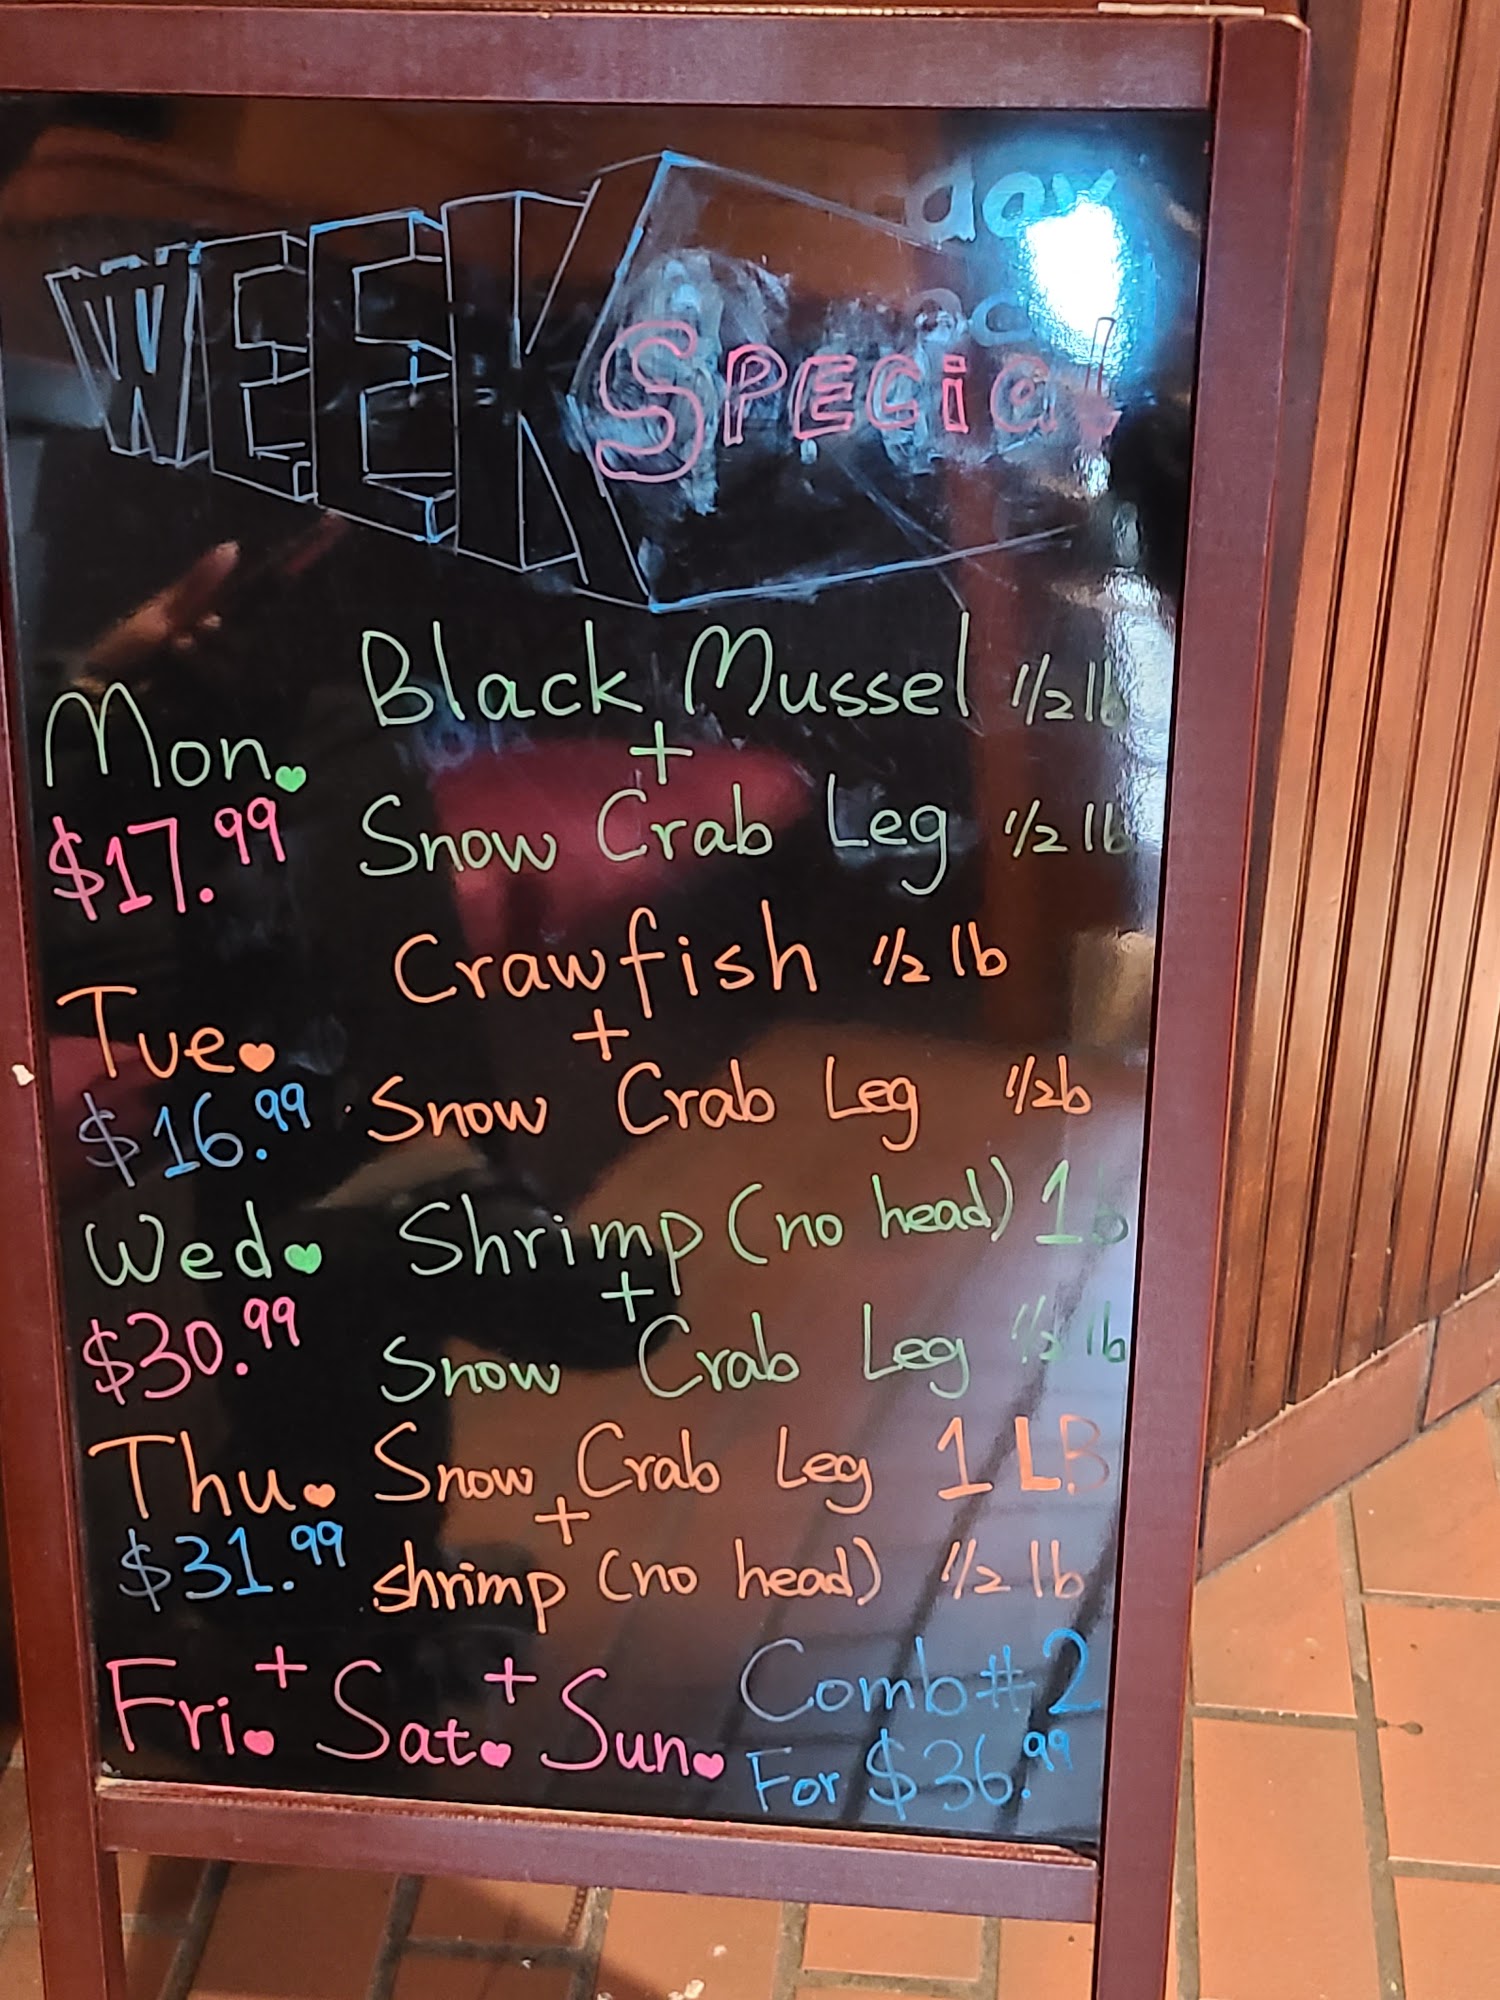 WEEK
day
Special
Black Mussel 1/2 lb
+
Mon.
$17.99
Snow Crab Leg 1/2 lb
Crawfish 1/2 lb
+
Tue.
$16.99
Snow Crab Leg 1/2b
Wed.
Shrimp (no head) 1b
+
$30.99
Snow Crab Leg 1/2 lb
Thu.
Snow Crab Leg 1 LB
+
$31.99
shrimp (no head) 1/2 lb
Fri. + Sat. + Sun.
Comb#2
For $36.99